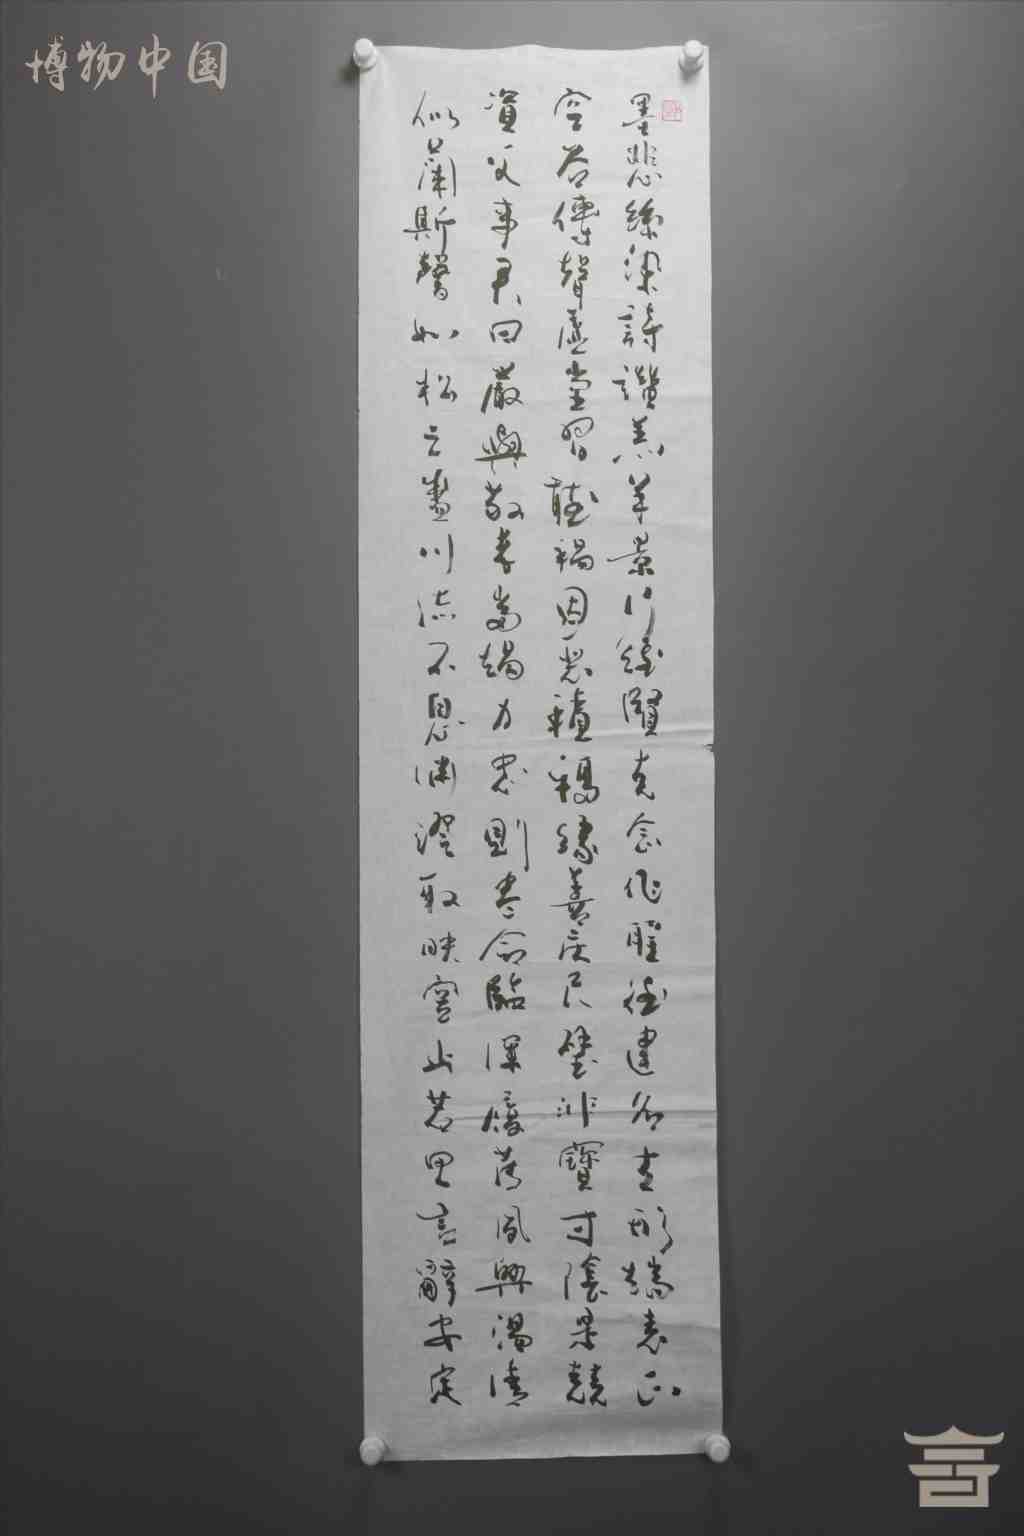 博物中国
墨悲絲染詩讚羔羊景行維賢克念作聖德建名立形端表正
空谷傳聲虛堂習聽禍因惡積福緣善慶尺璧非寶寸陰是競
資父事君曰嚴與敬孝當竭力忠則盡命臨深履薄夙興溫清
似蘭斯馨如松之盛川流不息淵澄取映容止若思言辭安定